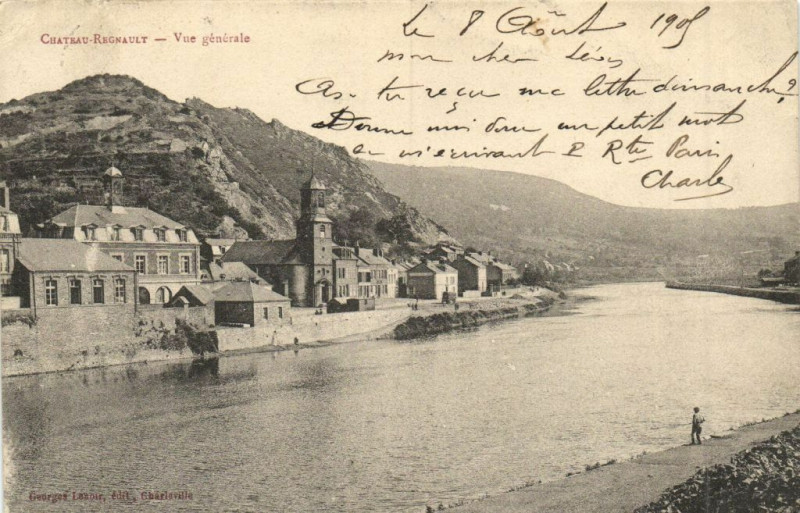 CHATEAU-REGNAULT — Vue générale
Le 8 Août 1905
mon cher Léo
As-tu reçu ma lettre dimanche?
Donne moi donc un petit mot
en m'écrivant P. Rte Paris
Charle
Georges Lenoir, édit., Charleville